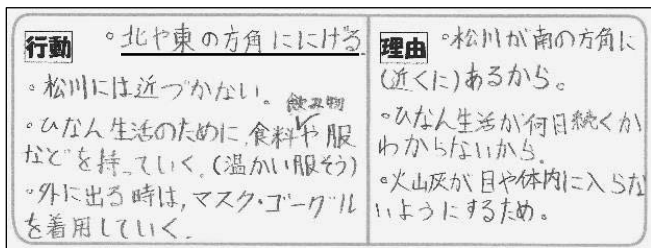 行動
◦北や東の方角ににげる
◦松川には近づかない。
飲み物
◦ひなん生活のために、食料や服
などを持っていく。(温かい服そう)
◦外に出る時は、マスク・ゴーグル
を着用していく。
理由
◦松川が南の方角に
(近くに)あるから。
◦ひなん生活が何日続くか
わからないから。
◦火山灰が目や体内に入らな
いようにするため。